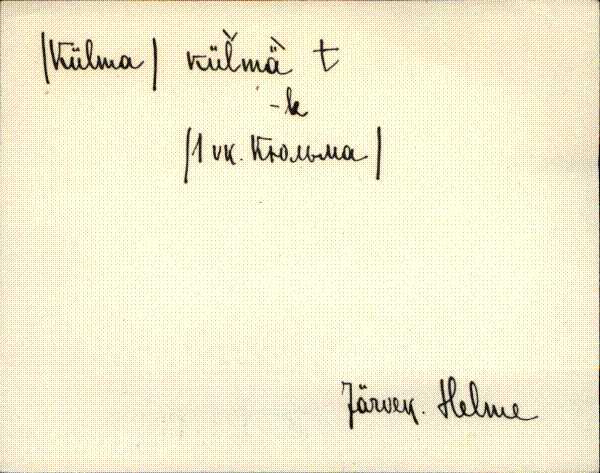 |Külma| kül̆mä̀ t
-k
|1 vk. Кюльма|
Järvek. Helme